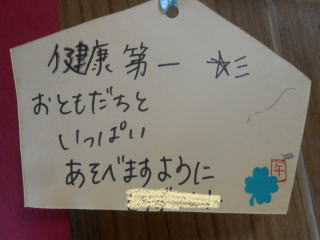 健康第一 ☆彡
おともだちと
いっぱい
あそべますように
午